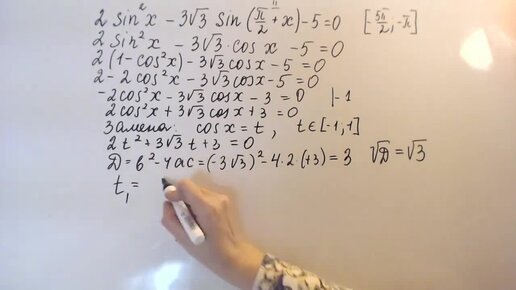 2 sin²x − 3√3 sin(π/2 + x) − 5 = 0 [−5π/2; −π]
2 sin²x − 3√3 · cos x − 5 = 0
2 (1 − cos²x) − 3√3 cos x − 5 = 0
2 − 2 cos²x − 3√3 cos x − 5 = 0
−2 cos²x − 3√3 cos x − 3 = 0 |·−1
2 cos²x + 3√3 cos x + 3 = 0
Замена: cos x = t, t ∈ [−1, 1]
2t² + 3√3 t + 3 = 0
D = b² − 4ac = (−3√3)² − 4·2·(+3) = 3 √D = √3
t₁ =